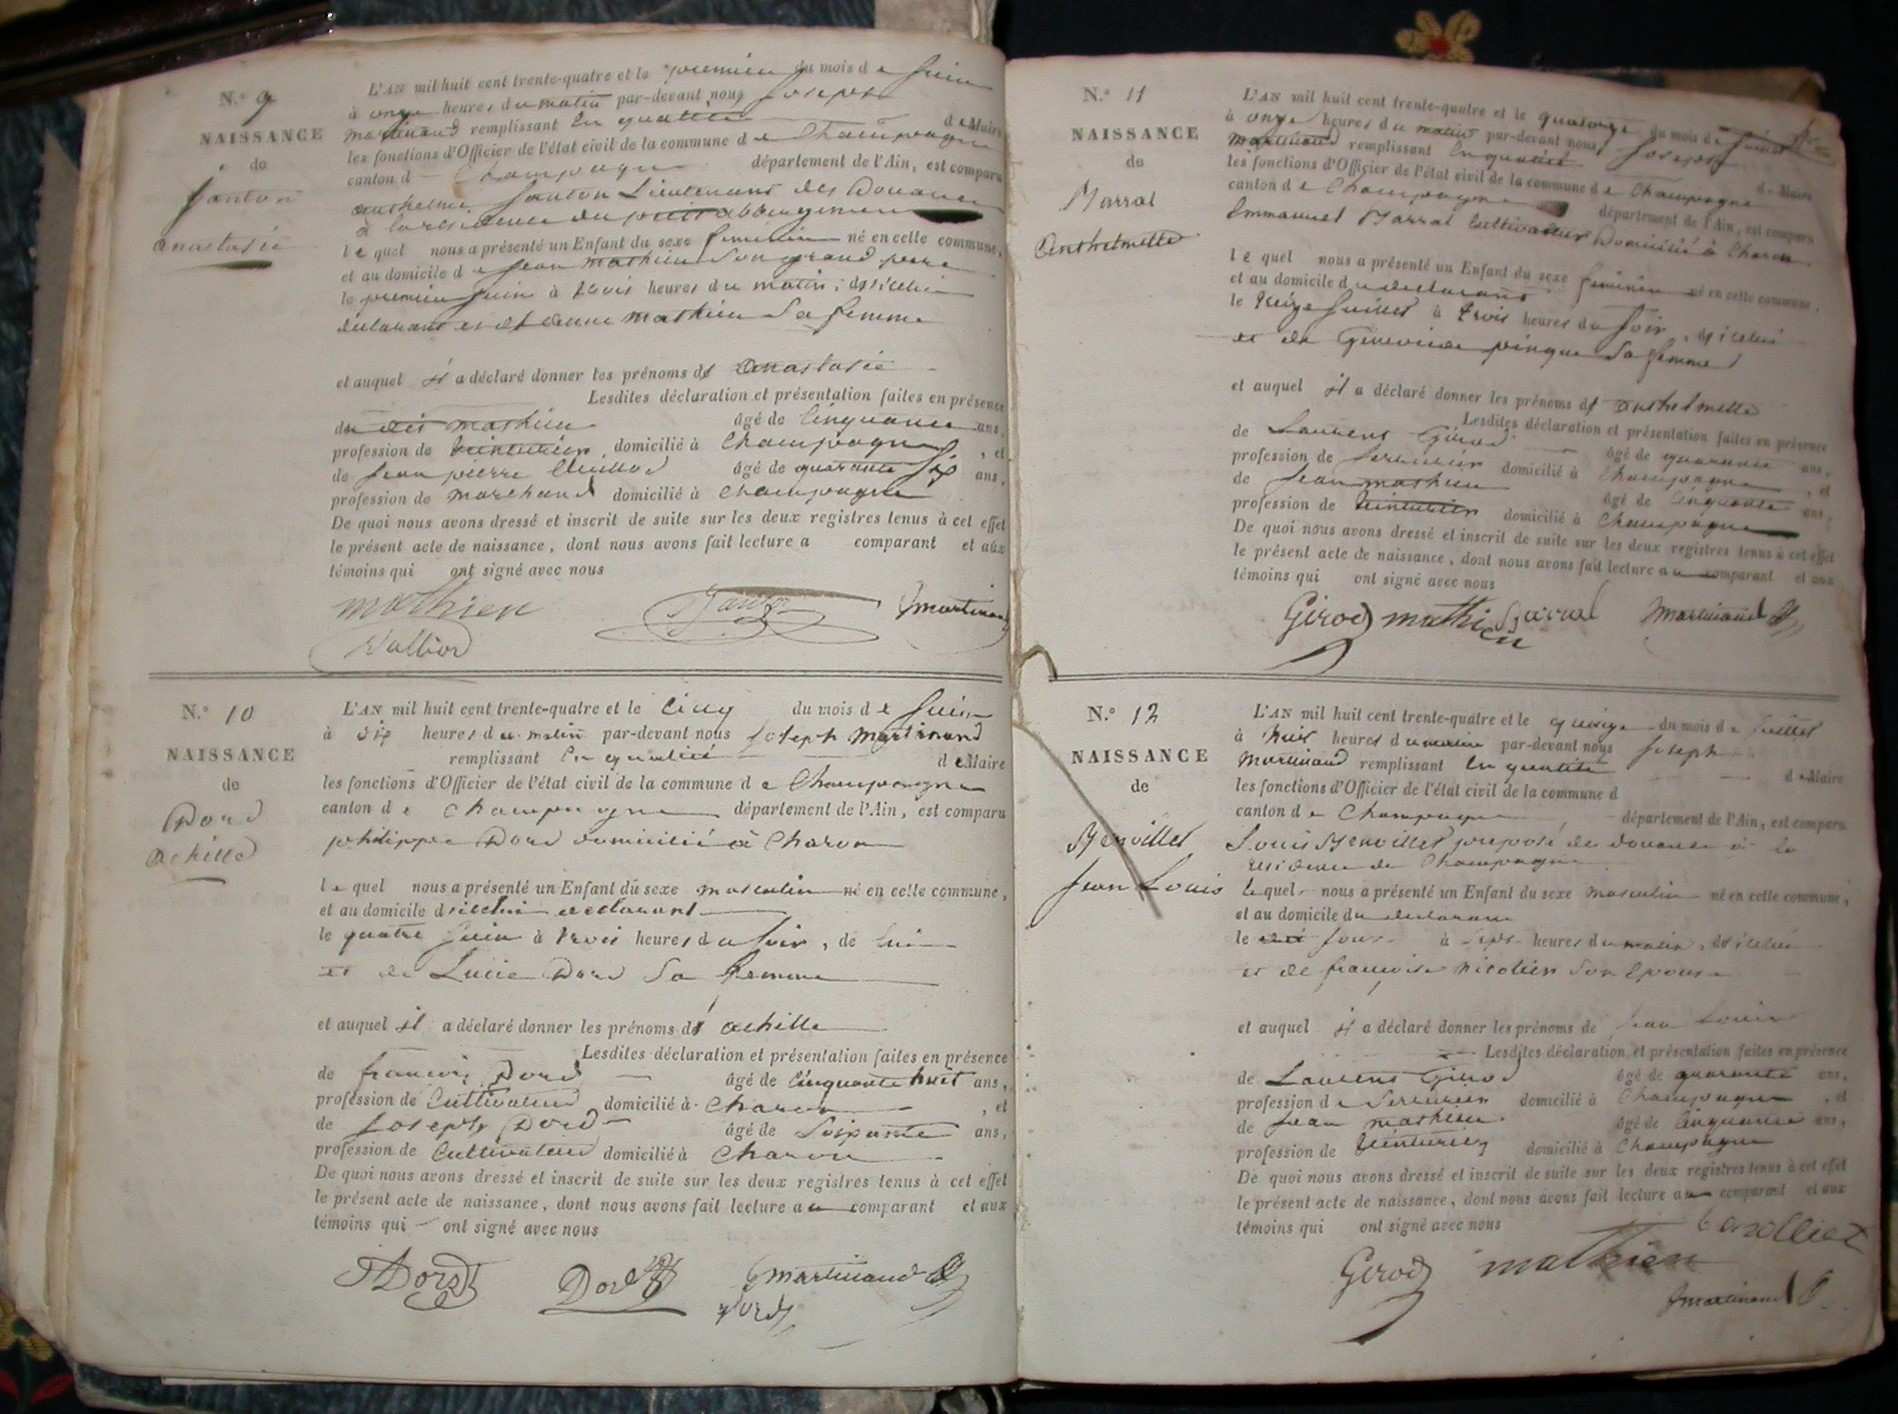 N.º 9
NAISSANCE
de
Janton
Anastasie
L'AN mil huit cent trente-quatre et le premier du mois de Juin
à onze heures du matin par-devant nous Joseph
Martinand remplissant en qualité de Maire
les fonctions d'Officier de l'état civil de la commune de Champagne
canton d Champagne département de l'Ain, est comparu
anthelme Janton Lieutenant des Douanes
à la résidence du petit abbergement
lequel nous a présenté un Enfant du sexe feminin né en cette commune,
et au domicile de Jean mathieu Son grand pere
le premier Juin à trois heures du matin, dsicelui
declarant et mathieu Sa femme
et auquel il a déclaré donner les prénoms ds anastasie
Lesdites déclaration et présentation faites en présence
du dit mathieu âgé de Cinquante ans,
profession de teinturier, domicilié à Champagne, et
de Jean pierre âgé de quarante Six ans,
profession de marchand domicilié à Champagne
De quoi nous avons dressé et inscrit de suite sur les deux registres tenus à cet effet
le présent acte de naissance, dont nous avons fait lecture a comparant et aux
témoins qui ont signé avec nous
mathieu Janton Martinand
N.º 10
NAISSANCE
de
Dord
Achille
L'AN mil huit cent trente-quatre et le Cinq du mois de Juin
à six heures du matin par-devant nous Joseph Martinand
remplissant En qualité de Maire
les fonctions d'Officier de l'état civil de la commune de Champagne
canton de Champagne département de l'Ain, est comparu
philippe Dord domicilié à Charon
lequel nous a présenté un Enfant du sexe masculin né en cette commune,
et au domicile dsicelui declarant
le quatre Juin à trois heures du Soir, de lui
et de Lucie Dord Sa femme
et auquel il a déclaré donner les prénoms ds achille
Lesdites déclaration et présentation faites en présence
de francois Dord âgé de Cinquante huit ans,
profession de Cultivateur domicilié à Charon, et
de Joseph Dord âgé de Soixante ans,
profession de Cultivateur domicilié à Charon
De quoi nous avons dressé et inscrit de suite sur les deux registres tenus à cet effet
le présent acte de naissance, dont nous avons fait lecture au comparant et aux
témoins qui ont signé avec nous
Dord Dord Martinand
Dord
N.º 11
NAISSANCE
de
Barral
Anthelmette
L'AN mil huit cent trente-quatre et le quatorze du mois de Juillet
à onze heures du matin par-devant nous Joseph
Martinand remplissant En qualité de Maire
les fonctions d'Officier de l'état civil de la commune de Champagne
canton de Champagne département de l'Ain, est comparu
Emmanuel Barral Cultivateur Domicilié à Charon
lequel nous a présenté un Enfant du sexe feminin né en cette commune,
et au domicile du declarant
le treize Juillet à trois heures du Soir, dsicelui
et de Genevieve pingue Sa femme
et auquel il a déclaré donner les prénoms ds anthelmette
Lesdites déclaration et présentation faites en présence
de Laurent Girod âgé de quarante ans,
profession de Serrurier domicilié à Champagne, et
de Jean mathieu âgé de Cinquante ans,
profession de teinturier domicilié à Champagne
De quoi nous avons dressé et inscrit de suite sur les deux registres tenus à cet effet
le présent acte de naissance, dont nous avons fait lecture au comparant et aux
témoins qui ont signé avec nous
Girod mathieu Barral Martinand
N.º 12
NAISSANCE
de
Benoillet
Jean Louis
L'AN mil huit cent trente-quatre et le quinze du mois de Juillet
à huit heures du matin par-devant nous Joseph
Martinand remplissant En qualité de Maire
les fonctions d'Officier de l'état civil de la commune d
canton de Champagne département de l'Ain, est comparu
Louis Benoillet preposé des douanes à la
residence de Champagne
lequel nous a présenté un Enfant du sexe masculin né en cette commune,
et au domicile du declarant
le dit Jour à Sept heures du matin, dsicelui
et de françoise nicolier Son Epouse
et auquel il a déclaré donner les prénoms de Jean Louis
Lesdites déclaration et présentation faites en présence
de Laurent Girod âgé de quarante ans,
profession de Serrurier domicilié à Champagne, et
de Jean mathieu âgé de Cinquante ans,
profession de teinturier domicilié à Champagne
De quoi nous avons dressé et inscrit de suite sur les deux registres tenus à cet effet
le présent acte de naissance, dont nous avons fait lecture au comparant et aux
témoins qui ont signé avec nous
Girod mathieu
Martinand